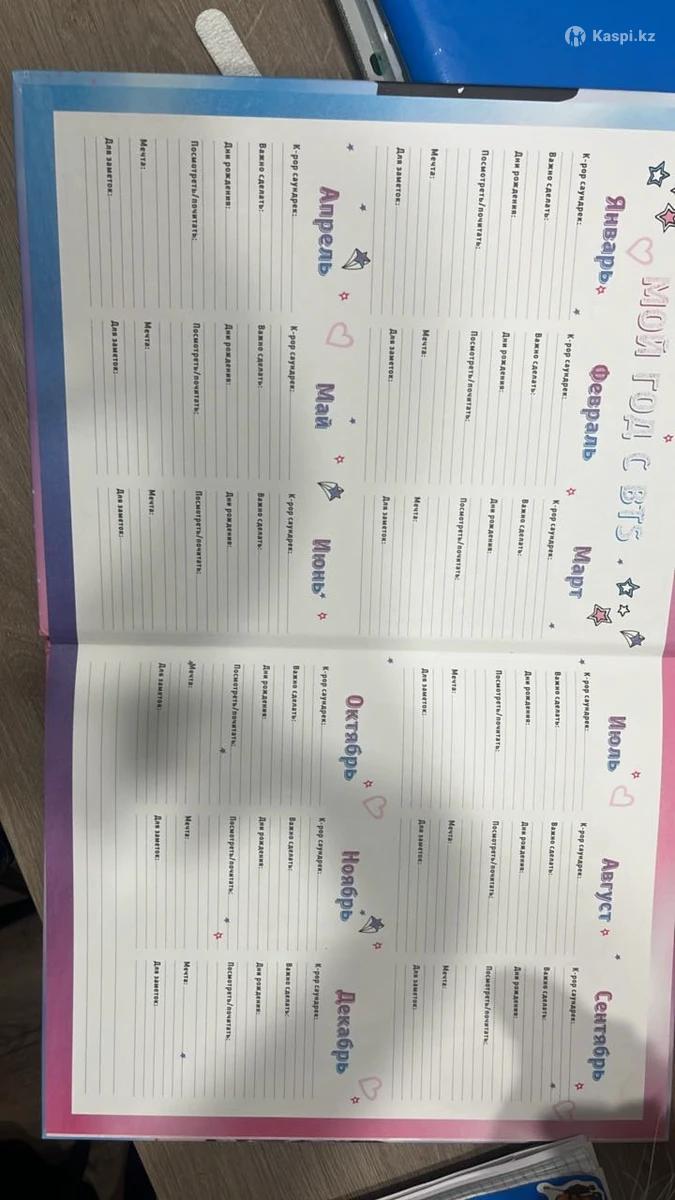 Kaspi.kz
МОЙ ГОД С BTS
Январь
K-pop саундрек:
Важно сделать:
Дни рождения:
Посмотреть/почитать:
Мечта:
Для заметок:
Февраль
K-pop саундрек:
Важно сделать:
Дни рождения:
Посмотреть/почитать:
Мечта:
Для заметок:
Март
K-pop саундрек:
Важно сделать:
Дни рождения:
Посмотреть/почитать:
Мечта:
Для заметок:
Апрель
K-pop саундрек:
Важно сделать:
Дни рождения:
Посмотреть/почитать:
Мечта:
Для заметок:
Май
K-pop саундрек:
Важно сделать:
Дни рождения:
Посмотреть/почитать:
Мечта:
Для заметок:
Июнь
K-pop саундрек:
Важно сделать:
Дни рождения:
Посмотреть/почитать:
Мечта:
Для заметок:
Июль
K-pop саундрек:
Важно сделать:
Дни рождения:
Посмотреть/почитать:
Мечта:
Для заметок:
Август
K-pop саундрек:
Важно сделать:
Дни рождения:
Посмотреть/почитать:
Мечта:
Для заметок:
Сентябрь
K-pop саундрек:
Важно сделать:
Дни рождения:
Посмотреть/почитать:
Мечта:
Для заметок:
Октябрь
K-pop саундрек:
Важно сделать:
Дни рождения:
Посмотреть/почитать:
Мечта:
Для заметок:
Ноябрь
K-pop саундрек:
Важно сделать:
Дни рождения:
Посмотреть/почитать:
Мечта:
Для заметок:
Декабрь
K-pop саундрек:
Важно сделать:
Дни рождения:
Посмотреть/почитать:
Мечта:
Для заметок: